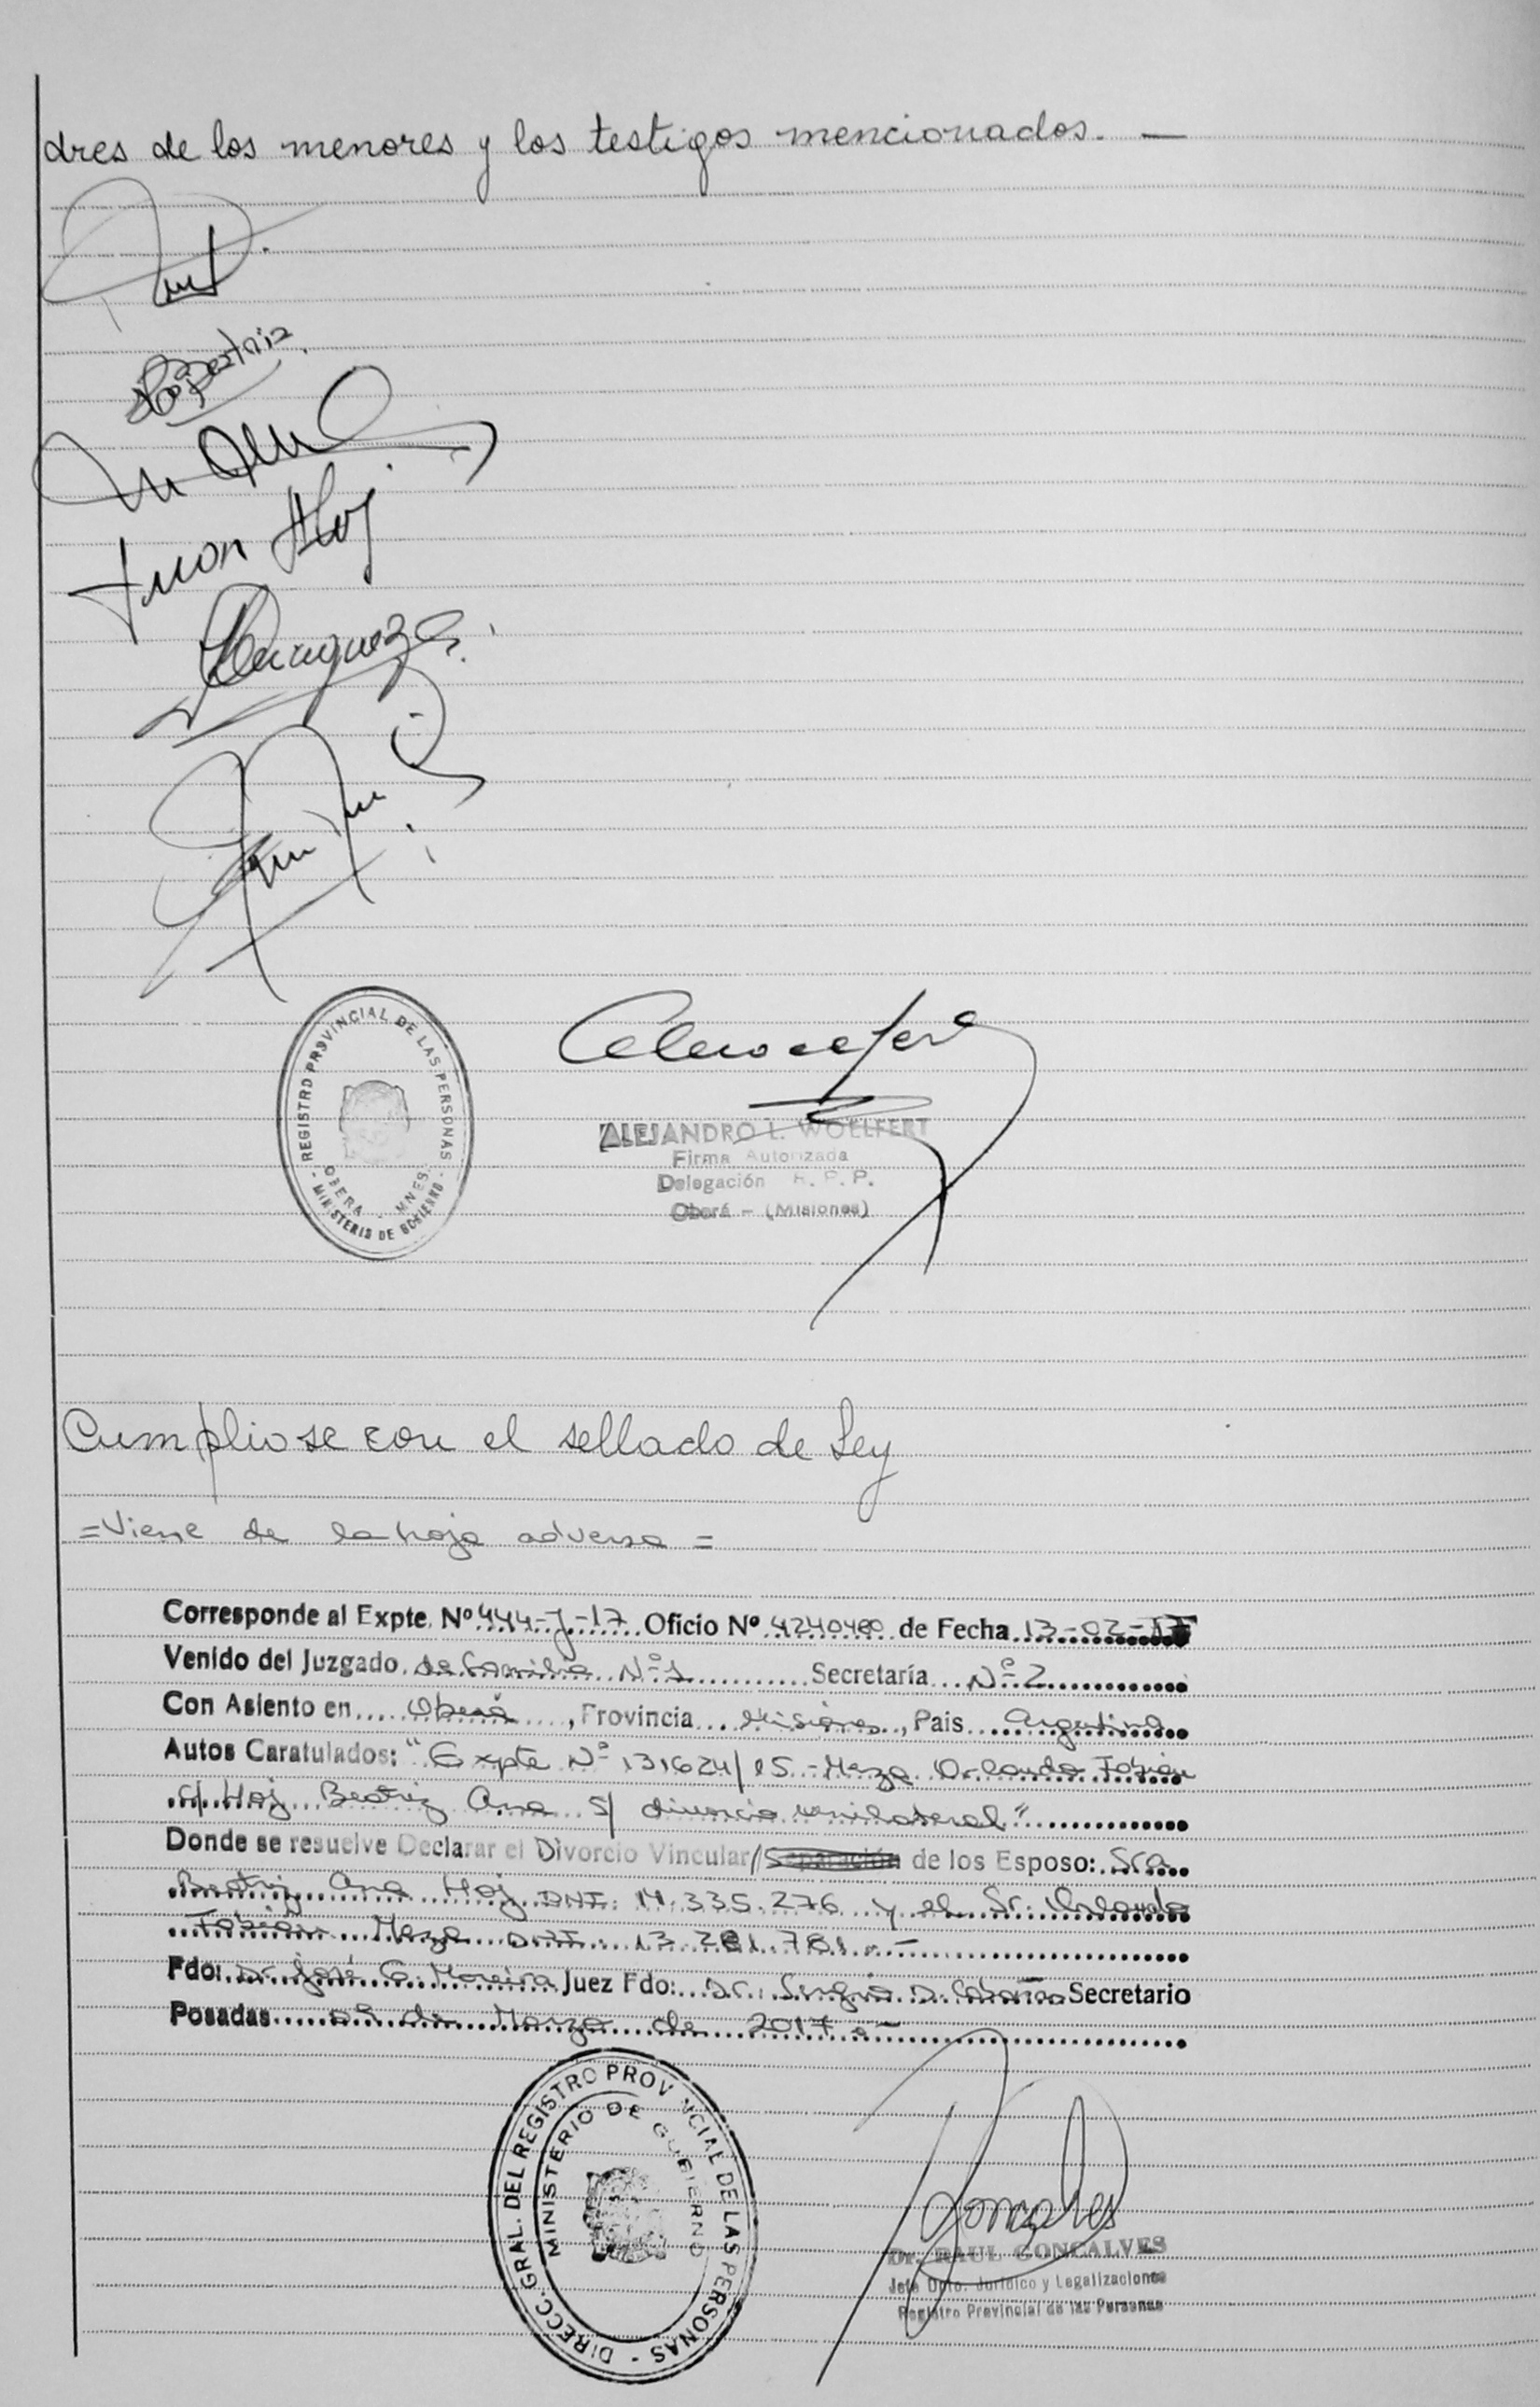 dres de los menores y los testigos mencionados. —
Beatriz
Juan Hoj
REGISTRO PROVINCIAL DE LAS PERSONAS
OBERA - MNES.
- MINISTERIO DE GOBIERNO -
ALEJANDRO L. WOELFERT
Firma Autorizada
Delegación R. P. P.
Oberá - (Misiones)
Cumpliose con el sellado de Ley
= Viene de la hoja adversa =
Corresponde al Expte. Nº 444-J-17 Oficio Nº 4240480 de Fecha 13-02-17
Venido del Juzgado de Familia Nº 1 Secretaría Nº 2
Con Asiento en Oberá, Provincia Misiones, Pais Argentina
Autos Caratulados: "Expte Nº 131624/15 - Meza Orlando Fabian
c/ Hoj Beatriz Ana s/ divorcio unilateral"
Donde se resuelve Declarar el Divorcio Vincular/Separación de los Esposo: Sra.
Beatriz Ana Hoj DNI: 14.335.276 y el Sr. Orlando
Fabian Meza DNI: 781.-
Fdo: Dr. José G. Moreira Juez Fdo: Dr. Sergio D. Secretario
Posadas de Marzo de 2017.-
DIRECC. GRAL. DEL REGISTRO PROVINCIAL DE LAS PERSONAS -
MINISTERIO DE GOBIERNO
Goncalves
Dr. RAUL GONCALVES
Jefe Dpto. Jurídico y Legalizaciones
Registro Provincial de las Personas